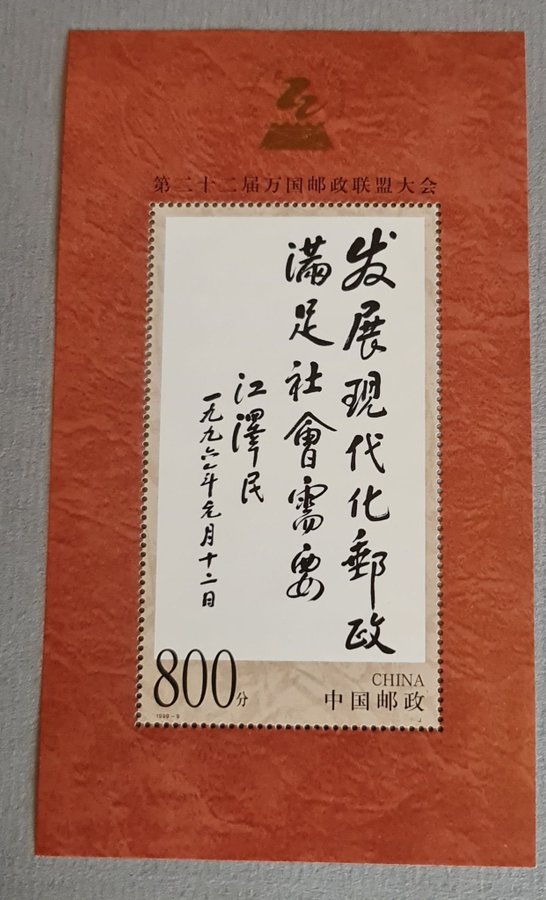 第二十二届万国邮政联盟大会
发展現代化郵政
满足社會需要
江澤民
一九九六年元月十二日
800分
CHINA
中国邮政
1999-9